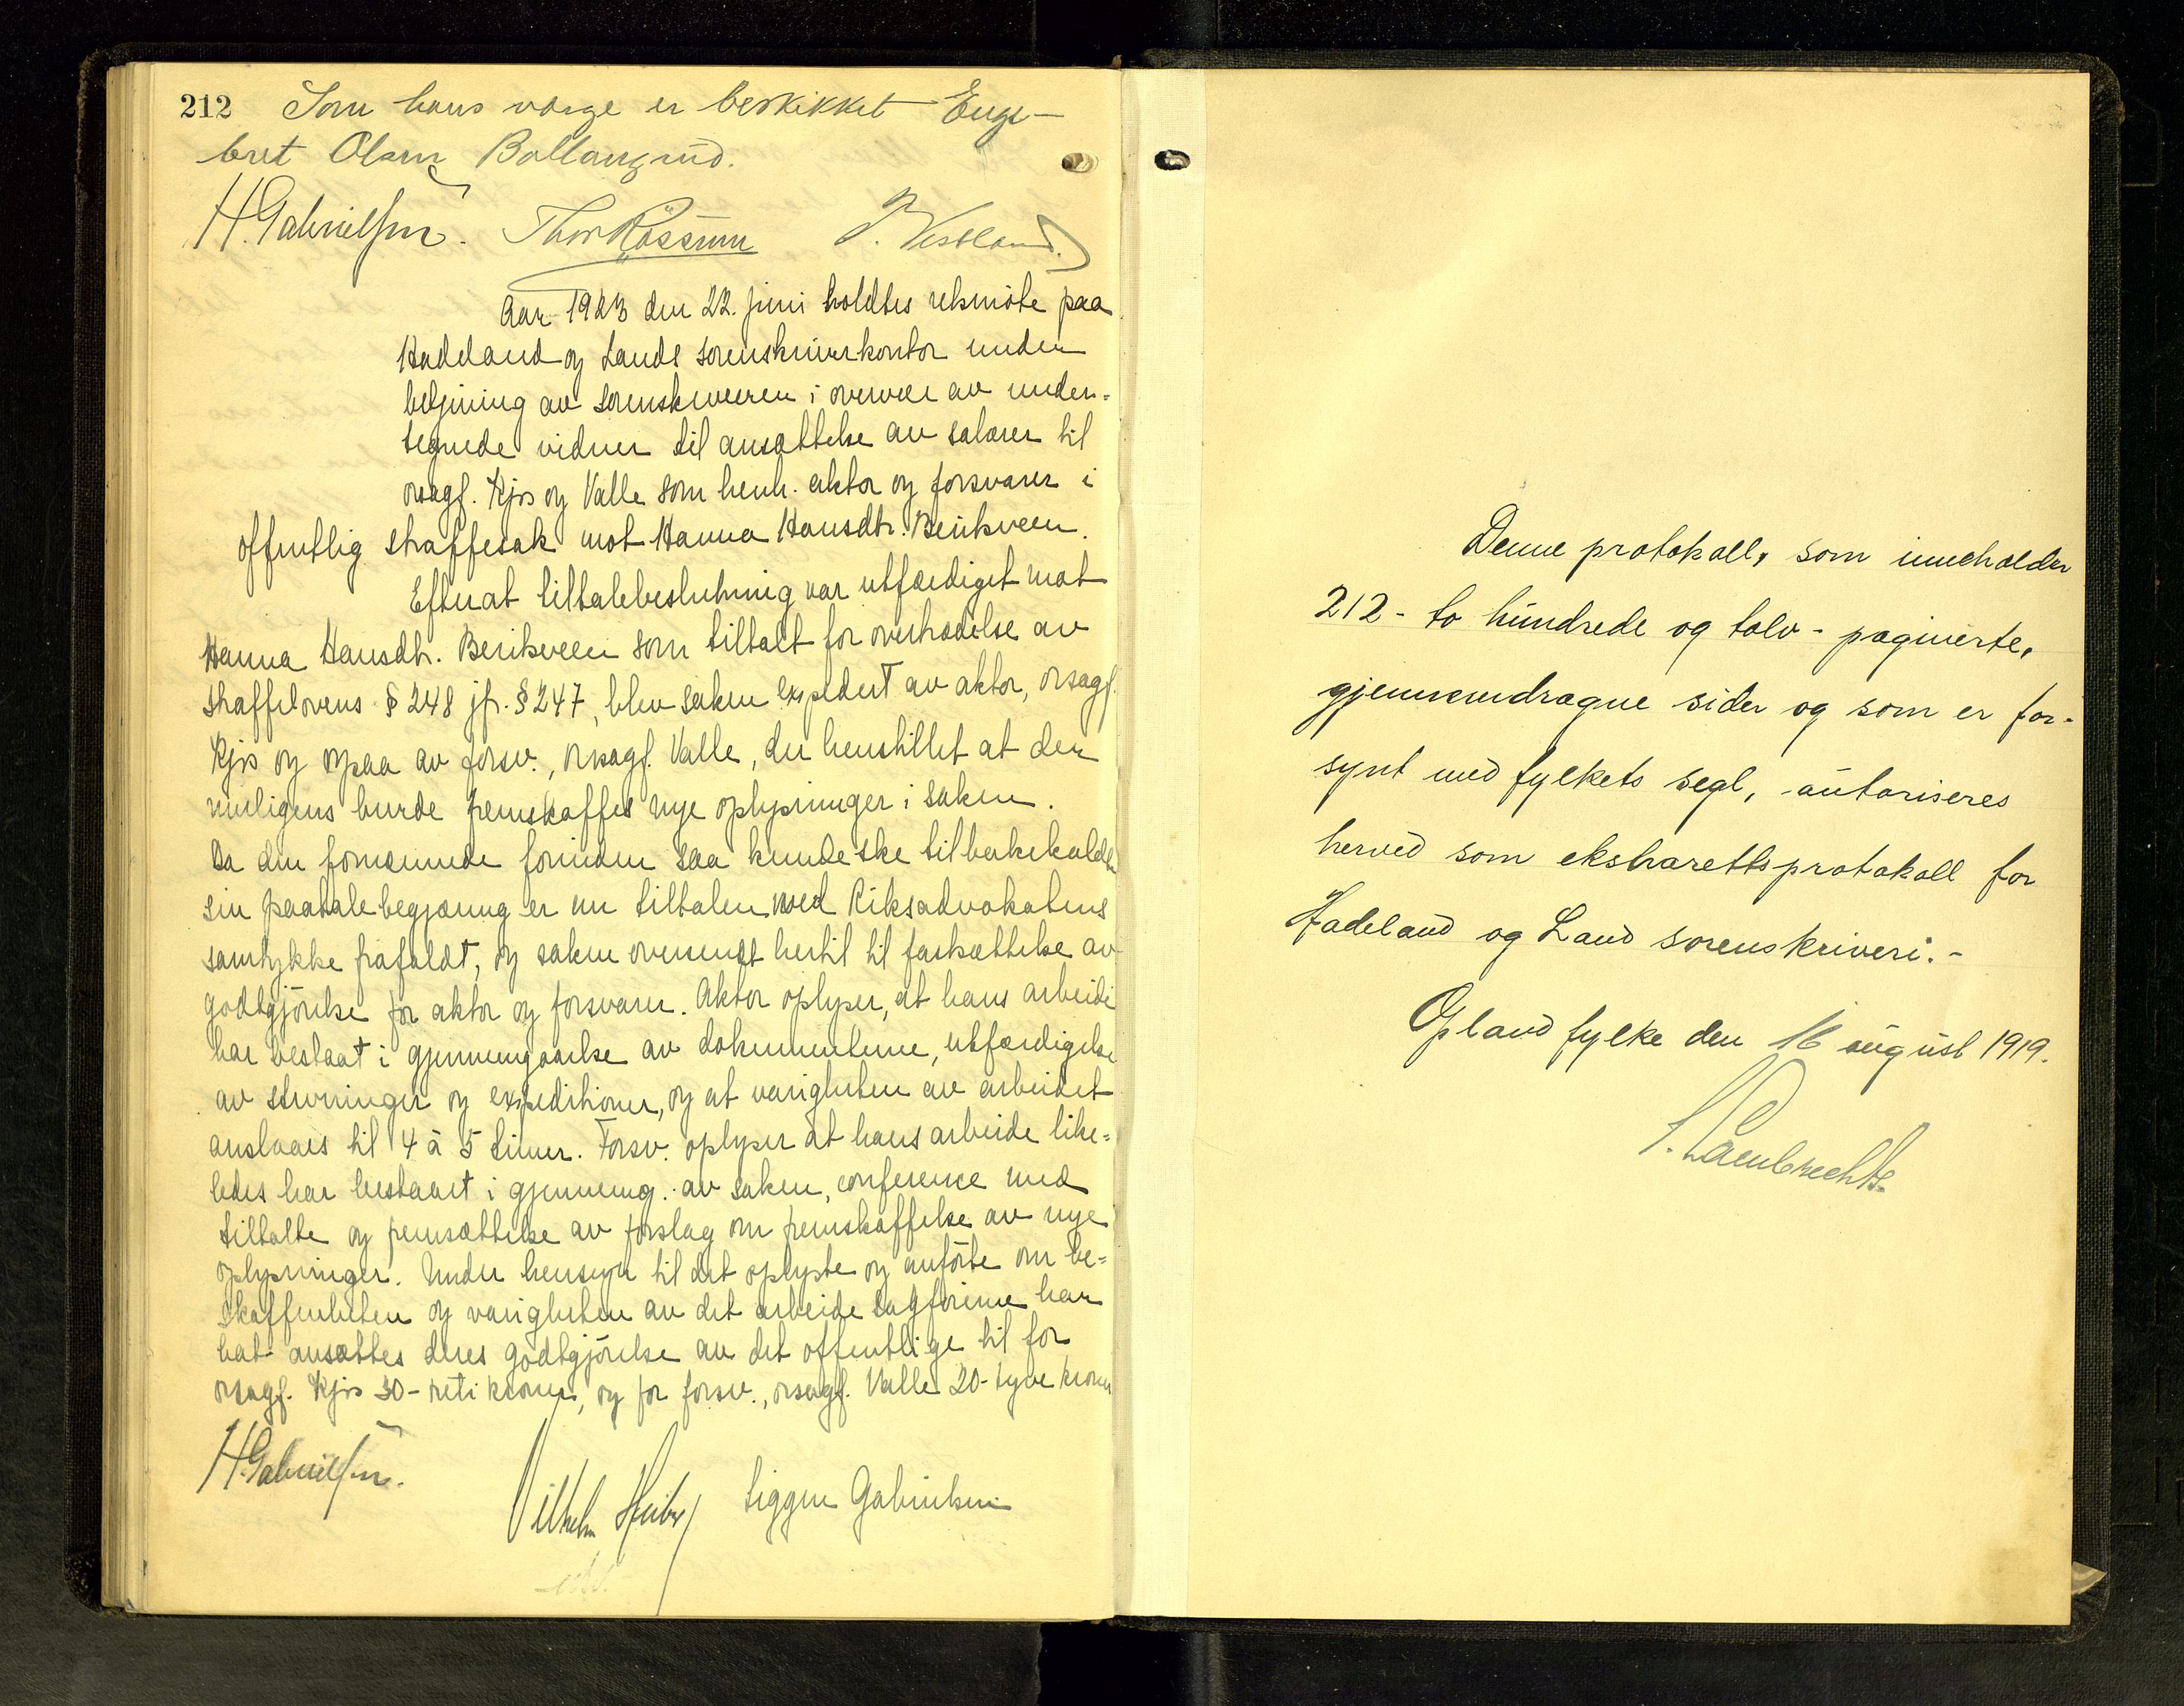 212 Som hans værge er beskikket Enge-
bret Olsen Ballangrud.
H. Gabrielsen. Thor Røssum P. Vestland.
Aar 1923 den 22. juni holdtes retsmøte paa
Hadeland og Lands sorenskriverkontor under
betjening av sorenskriveren i overvær av under-
tegnede vidner til ansættelse av salærer til
orsagf. Kjos og Valle som henh. aktor og forsvarer i
offentlig straffesak mot Hanna Hansdtr. Berikveen.
Efterat tiltalebeslutning var utfærdiget mot
Hanna Hansdtr. Berikveen som tiltalt for overtrædelse av
straffelovens § 248 jfr. § 247, blev saken expedert av aktor, orsagf.
Kjos og ogsaa av forsv., orsagf. Valle, der henstillet at der
muligens burde fremskaffes nye oplysninger i saken.
Da den fornærmede forinden saa kunde ske tilbakekaldte
sin paatalebegjæring er nu tiltalen med Riksadvokatens
samtykke frafaldt, og saken oversendt hertil til fastsættelse av
godtgjörelse for aktor og forsvarer. Aktor oplyser, at hans arbeide
har bestaat i gjennemgaaelse av dokumenterne, utfærdigelse
av stevninger og expeditioner, og at varigheten av arbeidet
anslaaes til 4 à 5 timer. Forsv. oplyser at hans arbeide like-
ledes har bestaaet i gjennemg. av saken, conference med
tiltalte og fremsættelse av forslag om fremskaffelse av nye
oplysninger. Under hensyn til det oplyste og anförte om be-
skaffenheten og varigheten av det arbeide sagförerne har
hat ansættes deres godtgjörelse av det offentlige til for
orsagf. Kjos 30 - treti kroner, og for forsv., orsagf. Valle 20 - tyve kroner
H. Gabrielsen. Vilhelm Heiberg Siggen Gabrielsen
Denne protokoll, som inneholder
212 - to hundrede og tolv - paginerte,
gjennemdragne sider og som er for-
synt med fylkets segl, autoriseres
herved som ekstrarettsprotokoll for
Hadeland og Land sorenskriveri. -
Opland fylke den 16 august 1919.
Lambrechts